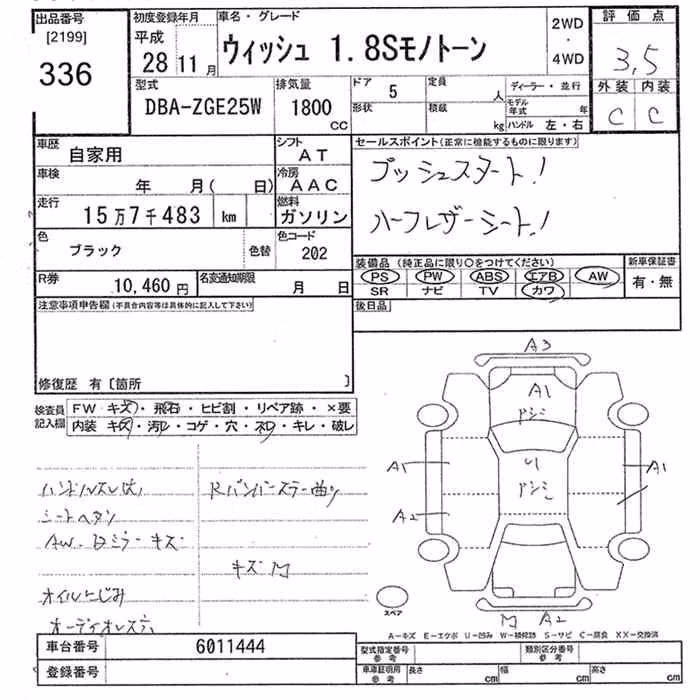 出品番号
[2199]
336
初度登録年月
平成
28年11月
車名・グレード
ウィッシュ 1.8Sモノトーン
2WD
・
4WD
評価点
3,5
外装 内装
C C
型式
DBA-ZGE25W
排気量
1800
CC
ドア 5
定員 人
形状
積載 kg
ディーラー・並行
モデル年式 年
ハンドル 左・右
車歴
自家用
シフト
AT
車検
年 月( 日)
冷房
AAC
走行
15万7千483 km
燃料
ガソリン
色
ブラック
色替
色コード
202
R券
10,460円
名変通知期限
月 日
セールスポイント(正常に機能するものに限ります)
プッシュスタート!
ハーフレザーシート!
装備品 (純正品に限り○をつけてください)
PS PW ABS エアB AW
SR ナビ TV カワ
新車保証書
有・無
後日品
注意事項申告欄(不具合内容等は具体的に記入して下さい)
修復歴 有〔箇所 〕
検査員記入欄
FW キズ・飛石・ヒビ割・リペア跡・×要
内装 キズ・汚レ・コゲ・穴・スレ・キレ・破レ
ハンドルスレ大
シートヘタリ
AW・Bミラーキズ
オイルにじみ
オーディオレス
Rバンパーステー曲り
キズM
A3
A1
アシミ
U1
アシミ
A1
A2
A1
M A2
スペア
A-キズ E-エクボ U-凹み W-補修跡 S-サビ C-腐食 XX-交換済
車台番号
6011444
登録番号
型式指定番号
参考
類別区分番号
参考
車庫証明用
参考
長さ cm
幅 cm
高さ cm